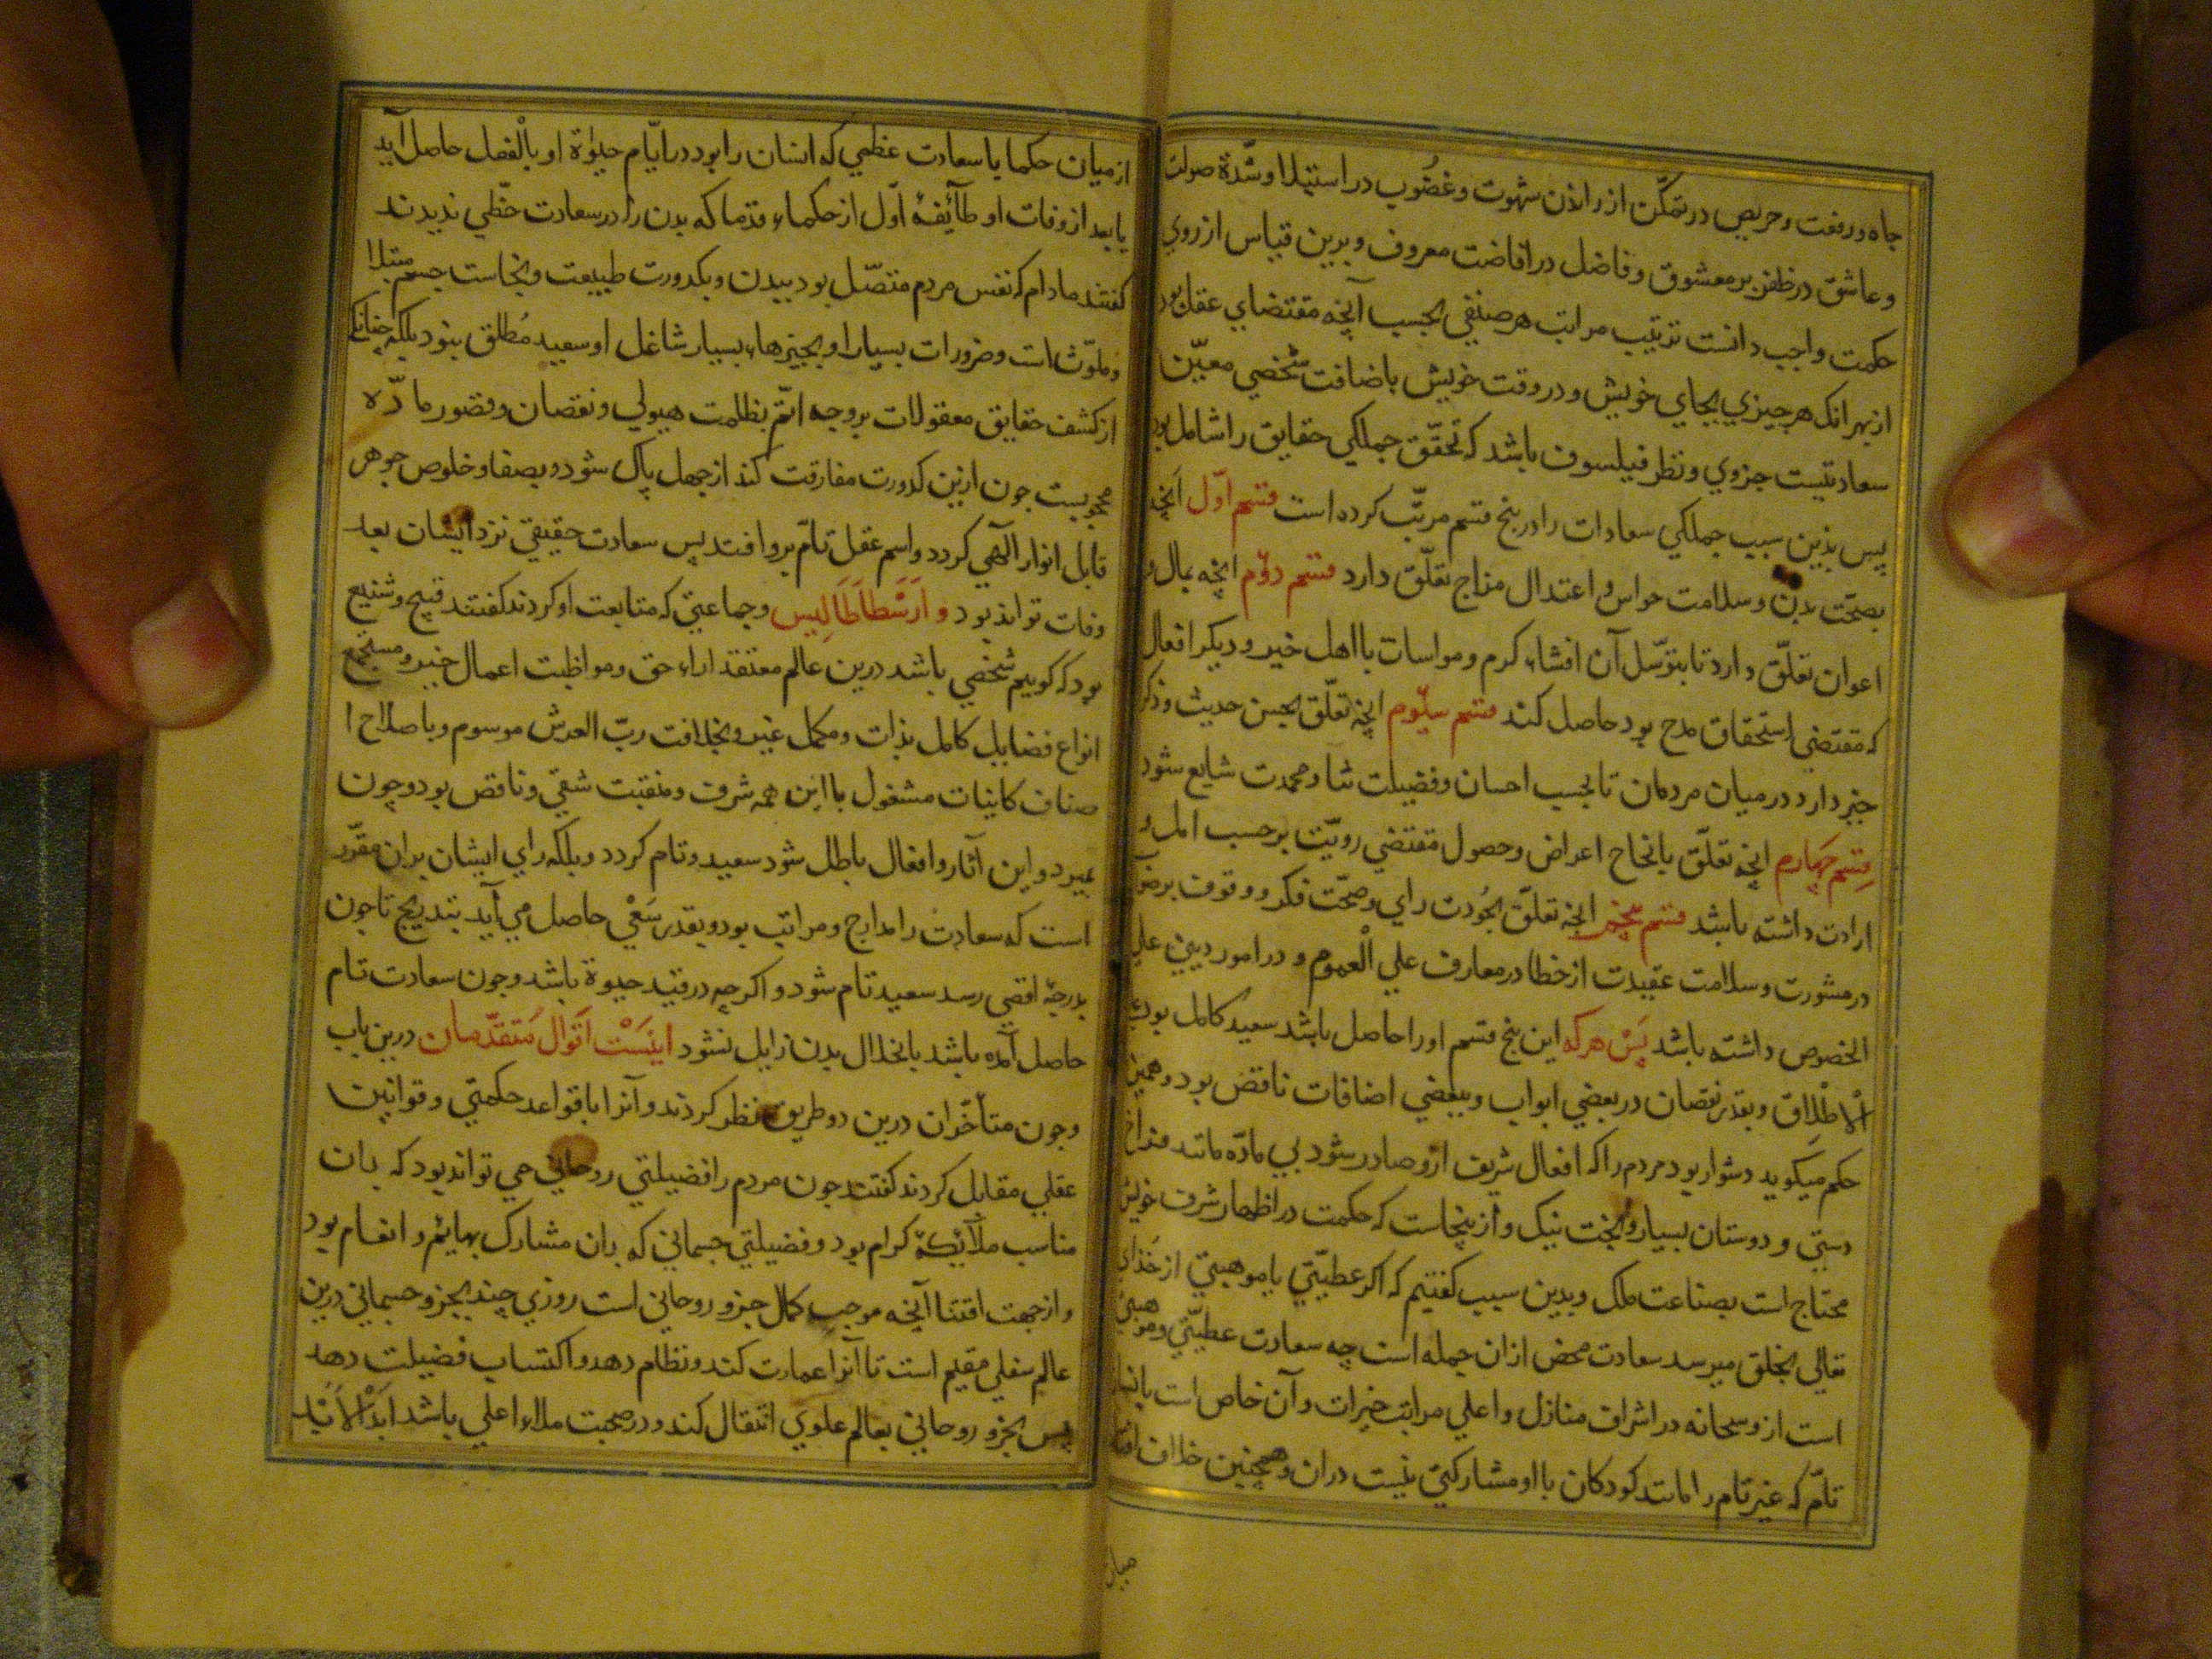 جاه و رفعت و حريص در تمكّن از راندن شهوت و غضوب در استيلا و شدّة صولت
و عاشق در ظفر بر معشوق و فاضل در افاضت معروف و برين قياس از روي
حكمت واجب دانست ترتيب مراتب هر صنفي بحسب آنچه مقتضاي عقل بود
از بهر انك هر چيزي بجاي خويش و در وقت خويش باضافت شخصي معيّن
سعادتيست جزوي و نظر فيلسوف باشد كه تحقّق جملكي حقايق را شامل بود
پس بذين سبب جملكي سعادات را در پنج قسم مرتّب كرده است قسم اوّل آنچه
بصحّت بدن و سلامت حواس و اعتدال مزاج تعلّق دارد قسم دوّم انچه بمال و
اعوان تعلّق دارد تا بتوسّل آن افشاء كرم و مواسات با اهل خير و ديكر افعال
كه مقتضي استحقاق مدح بود حاصل كند قسم سيّوم انچه تعلّق بحسن حديث و ذكر
خير دارد در ميان مردمان تا بحسب احسان و فضيلت ثنا و محمدت شايع شود
قسم چهارم انچه تعلّق بانجاح اعراض و حصول مقتضي رويّت بر حسب امل و
ارادت داشته باشد قسم پنجم انچه تعلّق بجُودت راي و صحّت فكر و وقوف بر صواب
در مشورت و سلامت عقيدت از خطا در معارف علي الْعموم و در امور ديني علي
الخصوص داشته باشد پَسْ هركه اين پنج قسم او را حاصل باشد سعيد كامل بود علي
اْلاطْلاق و بقدر نقصان در بعضي ابواب و ببعضي اضافات ناقص بود و همين
حكم ميكويد دشوار بود مردم را كه افعال شريف ازو صادر شود بي مادّه مانند فراخ
دستي و دوستان بسيار و بخت نيك و از ينجاست كه حكمت در اظهار شرف خويش
محتاج است بصناعت ملك و بدين سبب كفتيم كه اكر عطيّتي يا موهبتي از خداي
تعالي بخلق ميرسد سعادت محض از ان جمله است چه سعادت عطيّتي و موهبتي
است ازو سبحانه در اشراف منازل و اعلي مراتب خيرات و آن خاص است بانسان
تامّ كه غير تام را مانند كودكان با او مشاركتي نيست دران و همچنين خلاف افتاد
ميان
از ميان حكما يا سعادت عظمي كه انسان را بود در ايّام حيوٰة او بالْفعل حاصل آيد
يا بعد از وفات او طآئفهٔ اوّل از حكماء قدما كه بدن را در سعادت حظّي نديدند
كفتند مادام كه نفس مردم متصّل بود ببدن و بكدورت طبيعت و نجاست جسم مبتلا
و ملوّث است و ضرورات بسيار او بچيزهاء بسيار شاغل او سعيد مُطلق نبود بلكه چنانك
از كشف حقايق معقولات بر وجه اتمّ بظلمت هيولي و نقصان و قصور مادّه
محجوبست جون ازين كدورت مفارقت كند از جهل پاك شود و بصفا و خلوص جوهر
قابل انوار الٓهي كردد و اسم عقل تامّ برو افتد پس سعادت حقيقي نزد ايشان بعد
وفات تواند بود و اَرَسْطاطَاليس و جماعتي كه متابعت او كردند كفتند قبيح و شنيع
بود كه كوييم شخصي باشد درين عالم معتقد اراء حق و مواظبت اعمال خير و مستجمع
انواع فضايل كامل بذات و مكمل غير و بخلافت ربّ العرش موسوم و باصلاح ا
صناف كاينات مشغول با اين همه شرف و منقبت شقي و ناقص بود و چون
بميرد و اين آثار و افعال باطل شود سعيد و تام كردد و بلكه راي ايشان بران مقرّر
است كه سعادت را مدارج و مراتب بود و بقدر سَعْي حاصل مي آيد بتدريج تا جون
بدرجهٔ اقصي رسد سعيد تام شود و اكر چه در قيد حيوة باشد و جون سعادت تام
حاصل آمده باشد بانحلال بدن زايل نشود اينَسْت اَقوال مُتقدّمان درين باب
و جون متأخّران درين دو طريق نظر كردند و آنرا با قواعد حكمتي و قوانين
عقلي مقابل كردند كفتند جون مردم را فضيلتي روحاني مي تواند بود كه بدان
مناسب ملآئكهٔ كرام بود و فضيلتي جسماني كه بدان مشارك بهايم و انعام بود
و از جهت اقتنا آنچه موجب كمال جزو روحاني است روزي چند بجزو جسماني درين
عالم سفلي مقيم است تا آنرا عمارت كند و نظام دهد و اكتساب فضيلت دهد
پس بجزو روحاني بعالم علوي انتقال كند و در صحبت ملاء اعلي باشد ابَدْ الْاَبَد